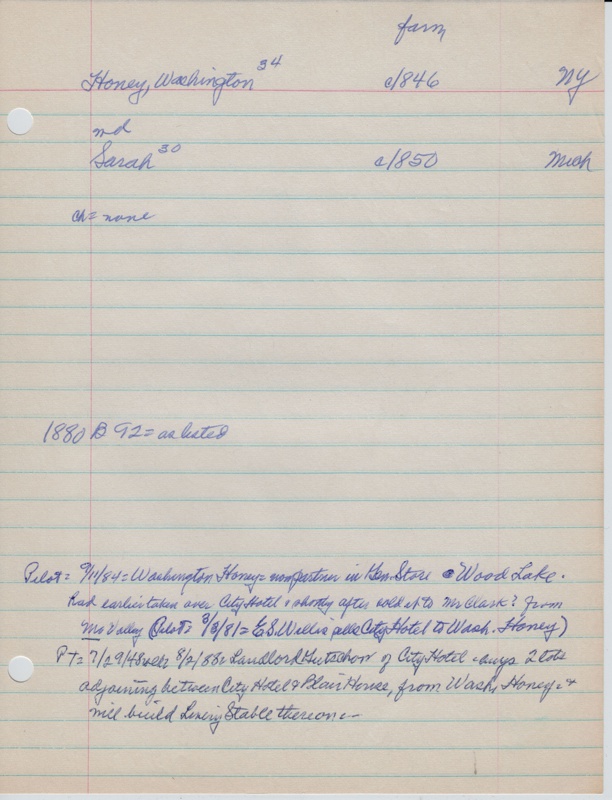 farm
Honey, Washington 34 c/846 NY
md
Sarah 30 c/850 Mich
ch = none
1880 B 92 = as listed
Pilot = 9/11/84 = Washington Honey = now partner in Gen. Store @ Wood Lake.
Had earlier taken over City Hotel & shortly after sold it to Mr Clark? from
Mo Valley (Pilot = 3/3/81 = E.S. Willis sells City Hotel to Wash. Honey)
PT = 8/2/88 = Landlord of City Hotel buys 2 lots
adjoining between City Hotel & Blair House, from Wash. Honey = &
will build Livery Stable thereon. -